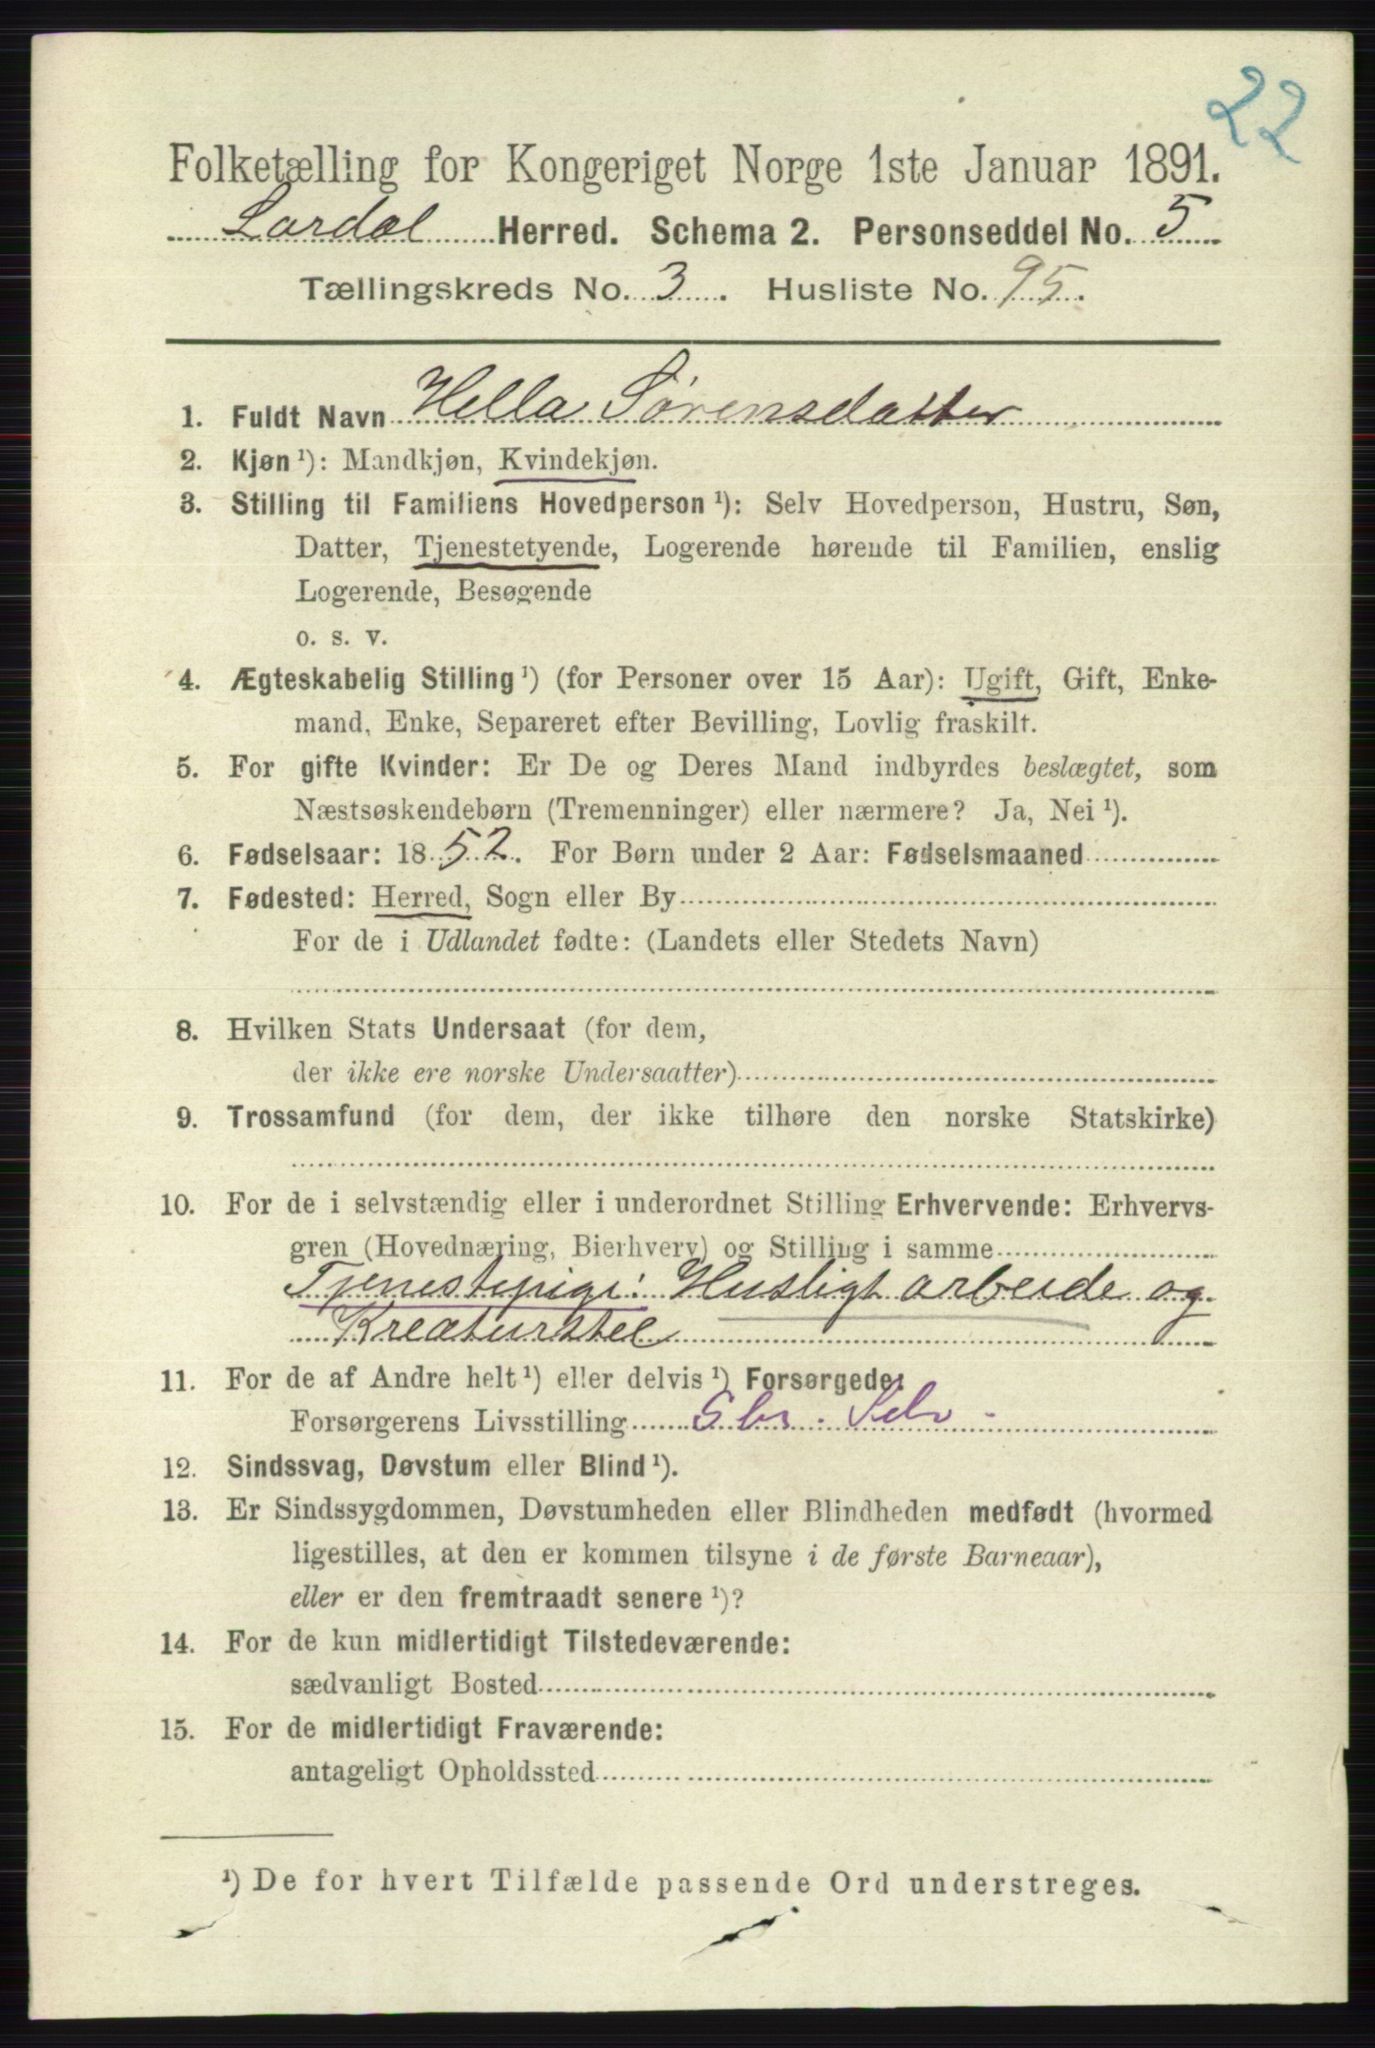 22
Folketælling for Kongeriget Norge 1ste Januar 1891.
Lardal Herred. Schema 2. Personseddel No. 5
Tællingskreds No. 3. Husliste No. 95.
1. Fuldt Navn Hella Sørensdatter
2. Kjøn ¹): Mandkjøn, Kvindekjøn.
3. Stilling til Familiens Hovedperson ¹): Selv Hovedperson, Hustru, Søn,
Datter, Tjenestetyende, Logerende hørende til Familien, enslig
Logerende, Besøgende
o. s. v.
4. Ægteskabelig Stilling ¹) (for Personer over 15 Aar): Ugift, Gift, Enke-
mand, Enke, Separeret efter Bevilling, Lovlig fraskilt.
5. For gifte Kvinder: Er De og Deres Mand indbyrdes beslægtet, som
Næstsøskendebørn (Tremenninger) eller nærmere? Ja, Nei ¹).
6. Fødselsaar: 1852. For Børn under 2 Aar: Fødselsmaaned
7. Fødested: Herred, Sogn eller By
For de i Udlandet fødte: (Landets eller Stedets Navn)
8. Hvilken Stats Undersaat (for dem,
der ikke ere norske Undersaatter)
9. Trossamfund (for dem, der ikke tilhøre den norske Statskirke)
10. For de i selvstændig eller i underordnet Stilling Erhvervende: Erhvervs-
gren (Hovednæring, Bierhverv) og Stilling i samme
Tjenestepige: Husligt arbeide og
Kreaturstel
11. For de af Andre helt ¹) eller delvis ¹) Forsørgede:
Forsørgerens Livsstilling Gbr. Selv.
12. Sindssvag, Døvstum eller Blind ¹).
13. Er Sindssygdommen, Døvstumheden eller Blindheden medfødt (hvormed
ligestilles, at den er kommen tilsyne i de første Barneaar),
eller er den fremtraadt senere ¹)?
14. For de kun midlertidigt Tilstedeværende:
sædvanligt Bosted
15. For de midlertidigt Fraværende:
antageligt Opholdssted
¹) De for hvert Tilfælde passende Ord understreges.